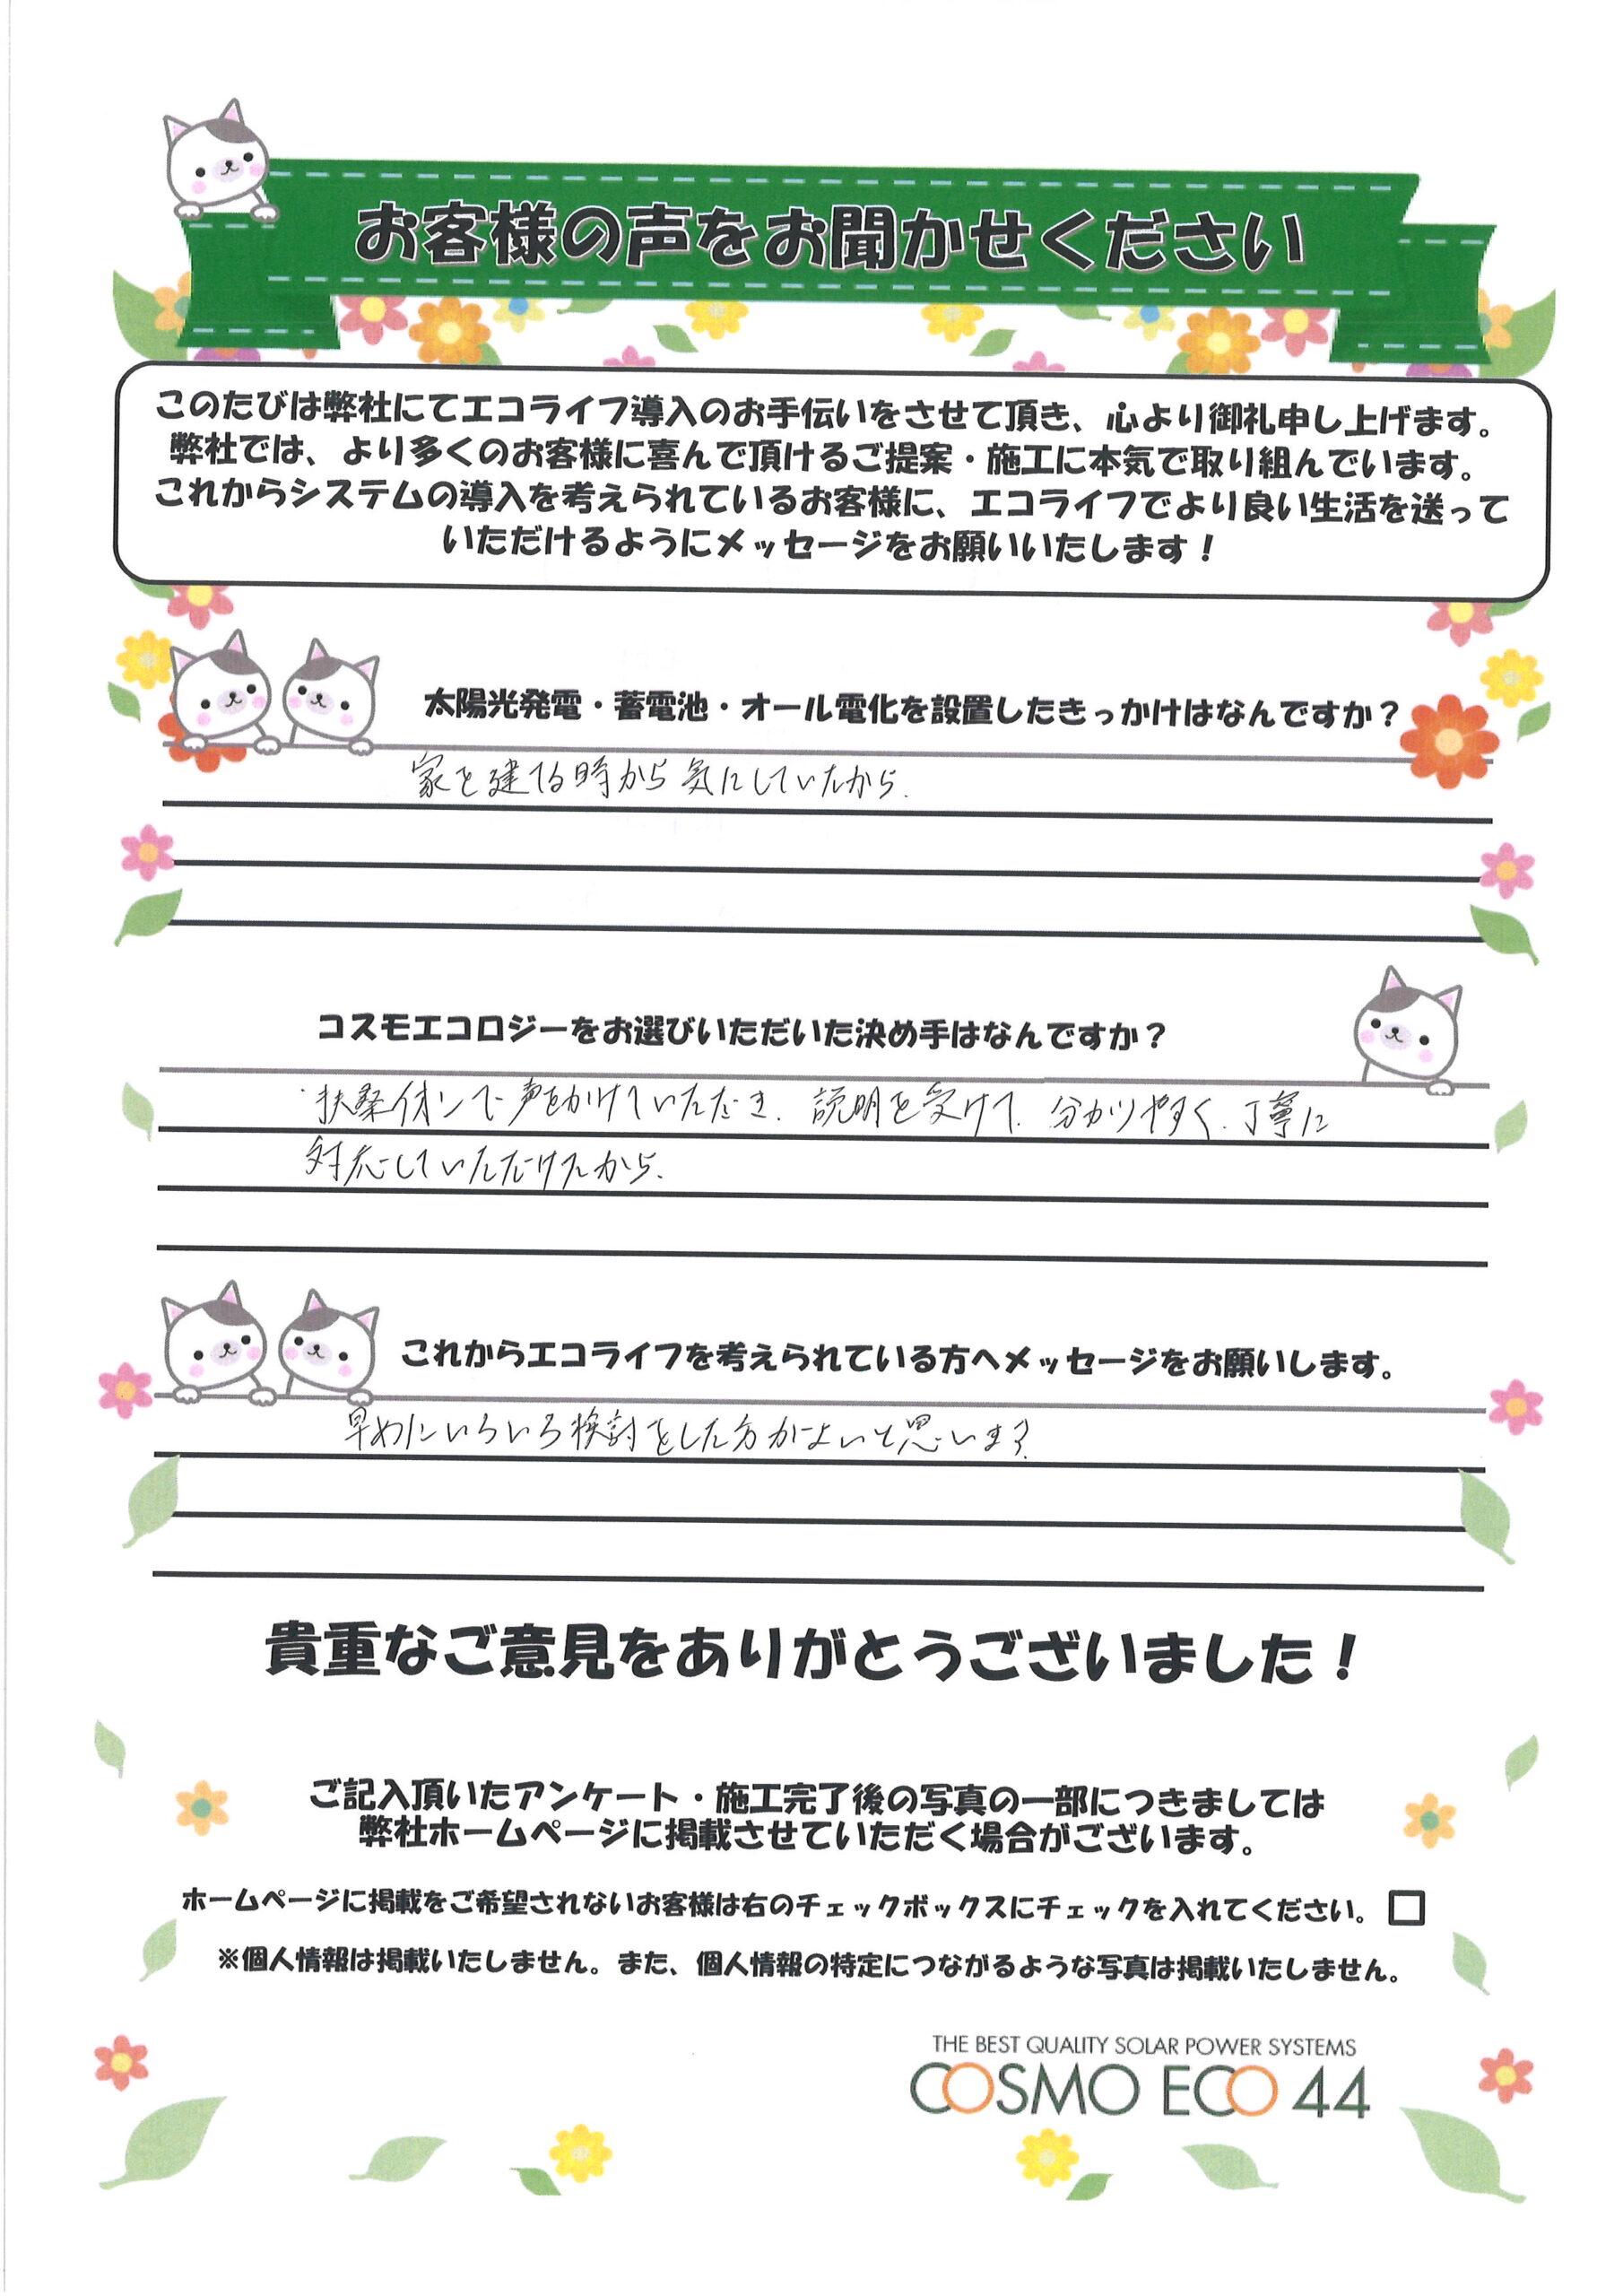 お客様の声をお聞かせください
このたびは弊社にてエコライフ導入のお手伝いをさせて頂き、心より御礼申し上げます。
弊社では、より多くのお客様に喜んで頂けるご提案・施工に本気で取り組んでいます。
これからシステムの導入を考えられているお客様に、エコライフでより良い生活を送って
いただけるようにメッセージをお願いいたします！
太陽光発電・蓄電池・オール電化を設置したきっかけはなんですか？
家を建てる時から気にしていたから.
コスモエコロジーをお選びいただいた決め手はなんですか？
・扶桑イオンで声をかけていただき、説明を受けて、分かりやすく、丁寧に
対応していただけたから、
これからエコライフを考えられている方へメッセージをお願いします。
早めにいろいろ検討をした方がよいと思います.
貴重なご意見をありがとうございました！
ご記入頂いたアンケート・施工完了後の写真の一部につきましては
弊社ホームページに掲載させていただく場合がございます。
ホームページに掲載をご希望されないお客様は右のチェックボックスにチェックを入れてください。□
※個人情報は掲載いたしません。また、個人情報の特定につながるような写真は掲載いたしません。
THE BEST QUALITY SOLAR POWER SYSTEMS
COSMO ECO 44